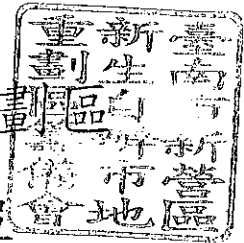 臺南市新營區
新生自辦市地
重劃會
劃區